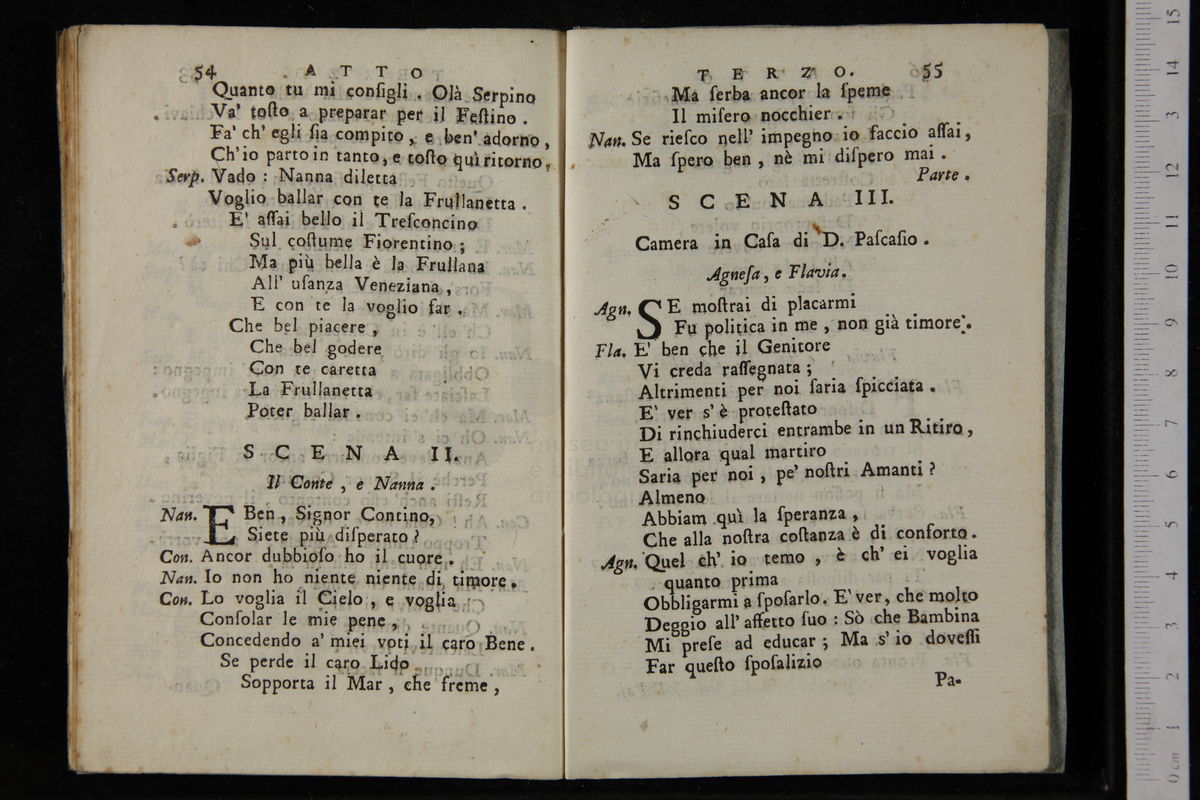 54 ATTO
Quanto tu mi conſigli . Olà Serpino
Va' toſto a preparar per il Feſtino .
Fa' ch' egli ſia compito , e ben' adorno ,
Ch'io parto in tanto, e toſto quì ritorno.
Serp. Vado : Nanna diletta
Voglio ballar con te la Frullanetta .
E' aſſai bello il Treſconcino
Sul coſtume Fiorentino ;
Ma più bella è la Frullana
All' uſanza Veneziana ,
E con te la voglio far .
Che bel piacere ,
Che bel godere
Con te caretta
La Frullanetta
Poter ballar .
SCENA II.
Il Conte , e Nanna .
Nan. E Ben , Signor Contino,
Siete più diſperato ?
Con. Ancor dubbioſo ho il cuore .
Nan. Io non ho niente niente di timore .
Con. Lo voglia il Cielo , e voglia
Conſolar le mie pene ,
Concedendo a' miei voti il caro Bene .
Se perde il caro Lido
Sopporta il Mar , che freme ,
TERZO. 55
Ma ſerba ancor la ſpeme
Il miſero nocchier .
Nan. Se rieſco nell' impegno io faccio aſſai,
Ma ſpero ben , nè mi diſpero mai .
Parte .
SCENA III.
Camera in Caſa di D. Paſcaſio .
Agneſa, e Flavia.
Agn. SE moſtrai di placarmi
Fu politica in me , non già timore .
Fla. E' ben che il Genitore
Vi creda raſſegnata ;
Altrimenti per noi ſaria ſpicciata .
E' ver s' è proteſtato
Di rinchiuderci entrambe in un Ritiro,
E allora qual martiro
Saria per noi , pe' noſtri Amanti ?
Almeno
Abbiam quì la ſperanza ,
Che alla noſtra coſtanza è di conforto.
Agn. Quel ch' io temo , è ch' ei voglia
quanto prima
Obbligarmi a ſpoſarlo. E' ver, che molto
Deggio all' affetto ſuo : Sò che Bambina
Mi preſe ad educar ; Ma s' io doveſſi
Far queſto ſpoſalizio
Pa-
0 cm 1 2 3 4 5 6 7 8 9 10 11 12 13 14 15